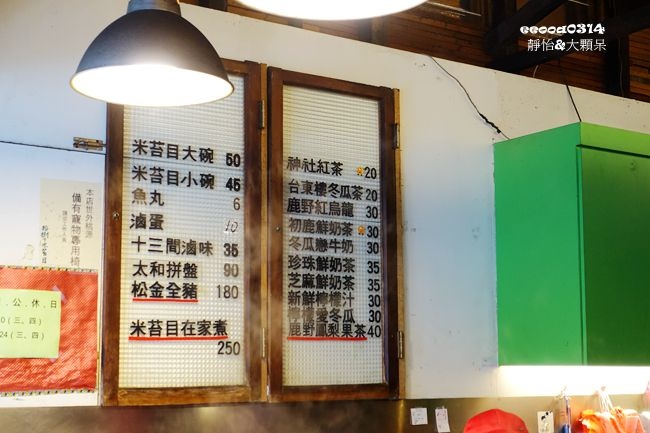 eeooa0314
靜怡&大顆呆
米苔目大碗 50
米苔目小碗 45
魚丸 6
滷蛋 10
十三間滷味 35
太和拼盤 90
松金全豬 180
米苔目在家煮
250
神社紅茶 ★20
台東檸冬瓜茶 20
鹿野紅烏龍 30
初鹿鮮奶茶 ★30
冬瓜戀牛奶 30
珍珠鮮奶茶 35
芝麻鮮奶茶 35
新鮮檸檬汁 30
檸檬愛冬瓜 30
鹿野鳳梨果茶 40
本店世外桃源
備有寵物專用椅
，公，休，日
0（三、四）
24（三、四）